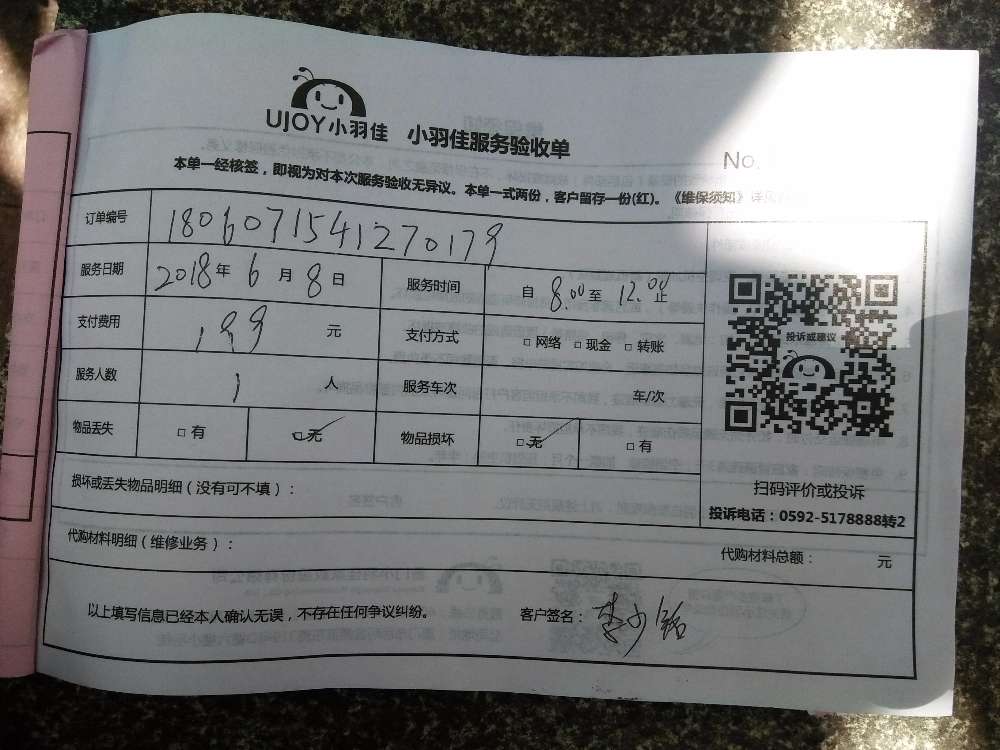 UJOY小羽佳 小羽佳服务验收单
No.
本单一经核签，即视为对本次服务验收无异议。本单一式两份，客户留存一份(红)。《维保须知》
订单编号 1806071541270179
服务日期 2018年6月8日 服务时间 自8:00至12:00止
支付费用 199 元 支付方式 □网络 □现金 □转账
服务人数 1 人 服务车次 车/次
物品丢失 □有 □无 物品损坏 □无 □有
投诉或建议
扫码评价或投诉
投诉电话：0592-5178888转2
损坏或丢失物品明细（没有可不填）：
代购材料明细（维修业务）： 代购材料总额： 元
以上填写信息已经本人确认无误，不存在任何争议纠纷。 客户签名：李少铭